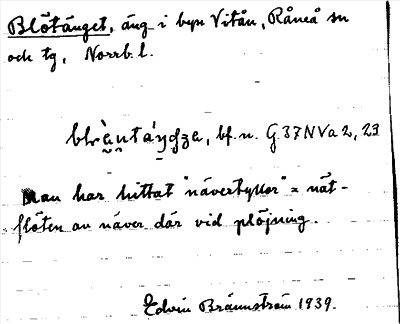 Blötänget, äng i byn Vitån, Råneå sn
och tg, Norrb. l.
bf. n. G. 37 N Va 2, 23
Man har hittat "nävertyllor" = nät-
flöten av näver där vid plöjning.
Edvin Brännström 1939.